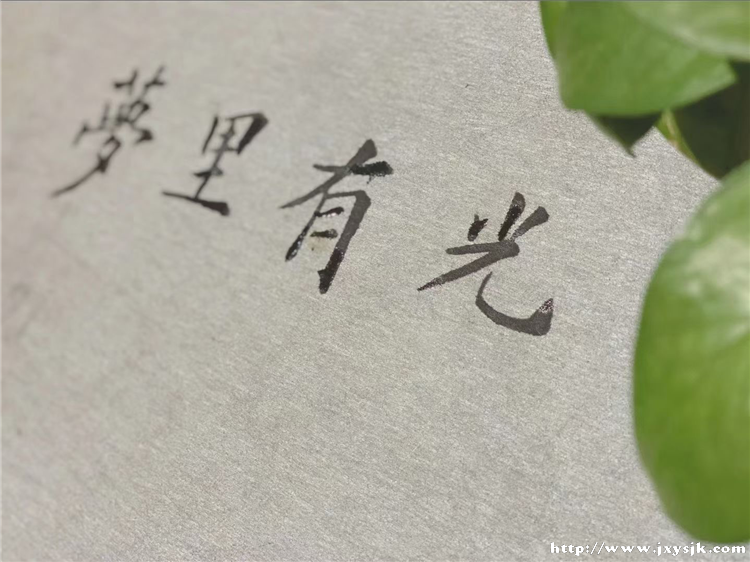 夢里有光
http://www.jxysjk.com/